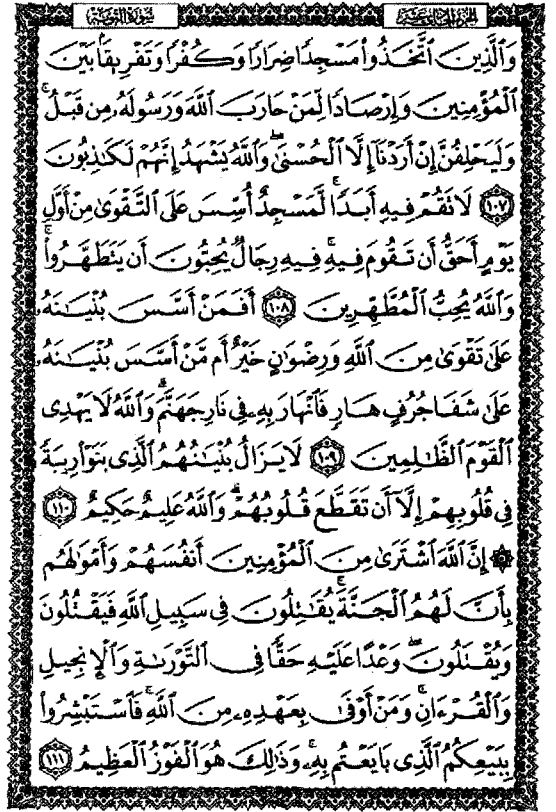 الجزء الحادي عشر سورة التوبة
وَالَّذِينَ اتَّخَذُوا مَسْجِدًا ضِرَارًا وَكُفْرًا وَتَفْرِيقًا بَيْنَ
الْمُؤْمِنِينَ وَإِرْصَادًا لِّمَنْ حَارَبَ اللَّهَ وَرَسُولَهُ مِن قَبْلُ ۚ
وَلَيَحْلِفُنَّ إِنْ أَرَدْنَا إِلَّا الْحُسْنَىٰ ۖ وَاللَّهُ يَشْهَدُ إِنَّهُمْ لَكَاذِبُونَ
١٠٧ لَا تَقُمْ فِيهِ أَبَدًا ۚ لَّمَسْجِدٌ أُسِّسَ عَلَى التَّقْوَىٰ مِنْ أَوَّلِ
يَوْمٍ أَحَقُّ أَن تَقُومَ فِيهِ ۚ فِيهِ رِجَالٌ يُحِبُّونَ أَن يَتَطَهَّرُوا ۚ
وَاللَّهُ يُحِبُّ الْمُطَّهِّرِينَ ١٠٨ أَفَمَنْ أَسَّسَ بُنْيَانَهُ
عَلَىٰ تَقْوَىٰ مِنَ اللَّهِ وَرِضْوَانٍ خَيْرٌ أَم مَّنْ أَسَّسَ بُنْيَانَهُ
عَلَىٰ شَفَا جُرُفٍ هَارٍ فَانْهَارَ بِهِ فِي نَارِ جَهَنَّمَ ۗ وَاللَّهُ لَا يَهْدِي
الْقَوْمَ الظَّالِمِينَ ١٠٩ لَا يَزَالُ بُنْيَانُهُمُ الَّذِي بَنَوْا رِيبَةً
فِي قُلُوبِهِمْ إِلَّا أَن تَقَطَّعَ قُلُوبُهُمْ ۗ وَاللَّهُ عَلِيمٌ حَكِيمٌ ١١٠
۞ إِنَّ اللَّهَ اشْتَرَىٰ مِنَ الْمُؤْمِنِينَ أَنفُسَهُمْ وَأَمْوَالَهُم
بِأَنَّ لَهُمُ الْجَنَّةَ ۚ يُقَاتِلُونَ فِي سَبِيلِ اللَّهِ فَيَقْتُلُونَ
وَيُقْتَلُونَ ۖ وَعْدًا عَلَيْهِ حَقًّا فِي التَّوْرَاةِ وَالْإِنجِيلِ
وَالْقُرْآنِ ۚ وَمَنْ أَوْفَىٰ بِعَهْدِهِ مِنَ اللَّهِ ۚ فَاسْتَبْشِرُوا
بِبَيْعِكُمُ الَّذِي بَايَعْتُم بِهِ ۚ وَذَٰلِكَ هُوَ الْفَوْزُ الْعَظِيمُ ١١١